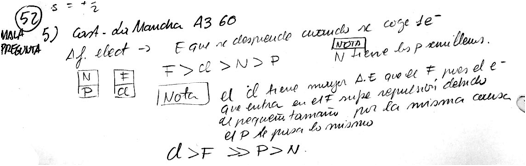 52 s = +1/2
MALA PREGUNTA
5) Cast. La Mancha A3 60
Af. elect → E que se desprende cuando se coge 1e-
F > Cl > N > P
NOTA
N tiene los p semillenos.
N F
P Cl
Nota el Cl tiene mayor A.E que el F, pues el e-
que entra en el F sufre repulsión debido
al pequeño tamaño por la misma causa
el P le pasa lo mismo
Cl > F >> P > N.